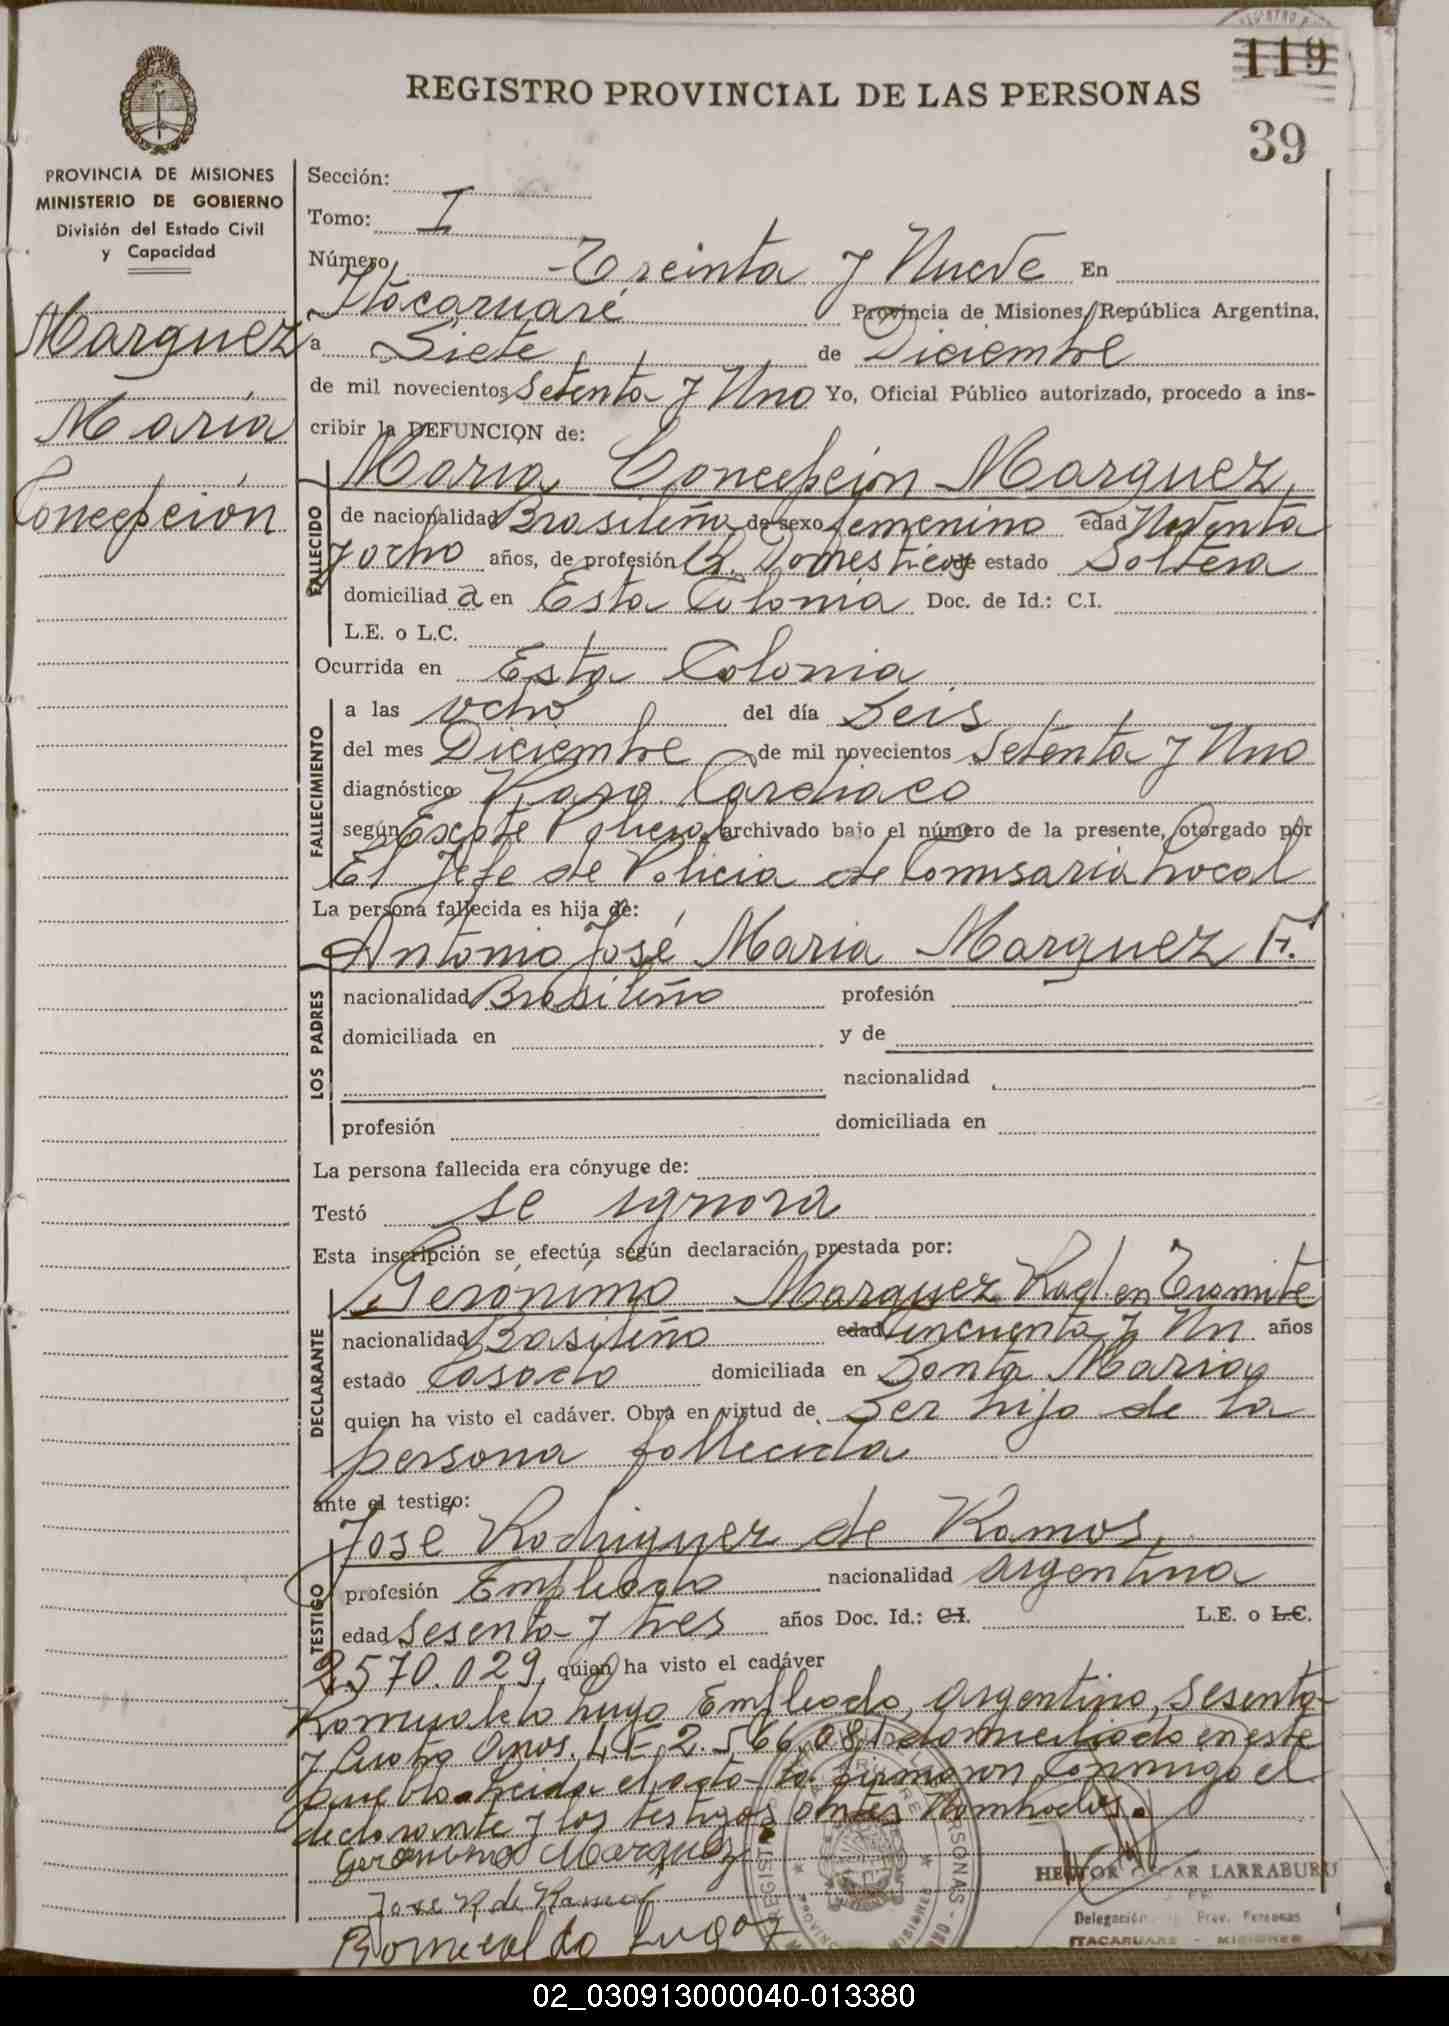 119
REGISTRO PROVINCIAL DE LAS PERSONAS
39
PROVINCIA DE MISIONES
MINISTERIO DE GOBIERNO
División del Estado Civil
y Capacidad
Marquez
María
Concepción
Sección:
Tomo: I
Número Treinta y Nueve En
Itacaruaré Provincia de Misiones, República Argentina,
a Siete de Diciembre
de mil novecientos Setenta y Uno Yo, Oficial Público autorizado, procedo a ins-
cribir la DEFUNCION de:
FALLECIDO
Maria Concepción Marquez,
de nacionalidad Brasileña de sexo femenino edad Noventa
y ocho años, de profesión Q. Domesticos de estado Soltera
domiciliad a en Esta Colonia Doc. de Id.: C.I.
L.E. o L.C.
Ocurrida en Esta Colonia
FALLECIMIENTO
a las ocho del día Seis
del mes Diciembre de mil novecientos Setenta y Uno
diagnóstico Paro Cardiaco
según Expte Policial archivado bajo el número de la presente, otorgado por
El Jefe de Policia de Comisaria Local
La persona fallecida es hija de:
LOS PADRES
Antonio José Maria Marquez F.
nacionalidad Brasileño profesión
domiciliada en y de
nacionalidad
profesión domiciliada en
La persona fallecida era cónyuge de:
Testó se ignora
Esta inscripción se efectúa según declaración prestada por:
DECLARANTE
Gerónimo Marquez Rad en Tramite
nacionalidad Brasileño edad Cincuenta y Un años
estado Casado domiciliada en Santa Maria y
quien ha visto el cadáver. Obra en virtud de Ser hijo de la
persona fallecida
ante el testigo:
TESTIGO
José Rodriguez de Ramos,
profesión Empleado nacionalidad argentina
edad Sesenta y tres años Doc. Id.: C.I. L.E. o L.C.
2.570.029, quien ha visto el cadáver
Romualdo Lugo Empleado, argentino, Sesenta
y Cuatro Años. L.E. 2.566.081 domiciliado en este
pueblo. Leida el acta la firmaron conmigo el
declarante y los testigos antes Nombrados.
Geronimo Marquez
Jose R de Ramos
Romualdo Lugo
HECTOR OSCAR LARRABURU
Delegación Prov. Personas
ITACARUARE - MISIONES
02_030913000040-013380